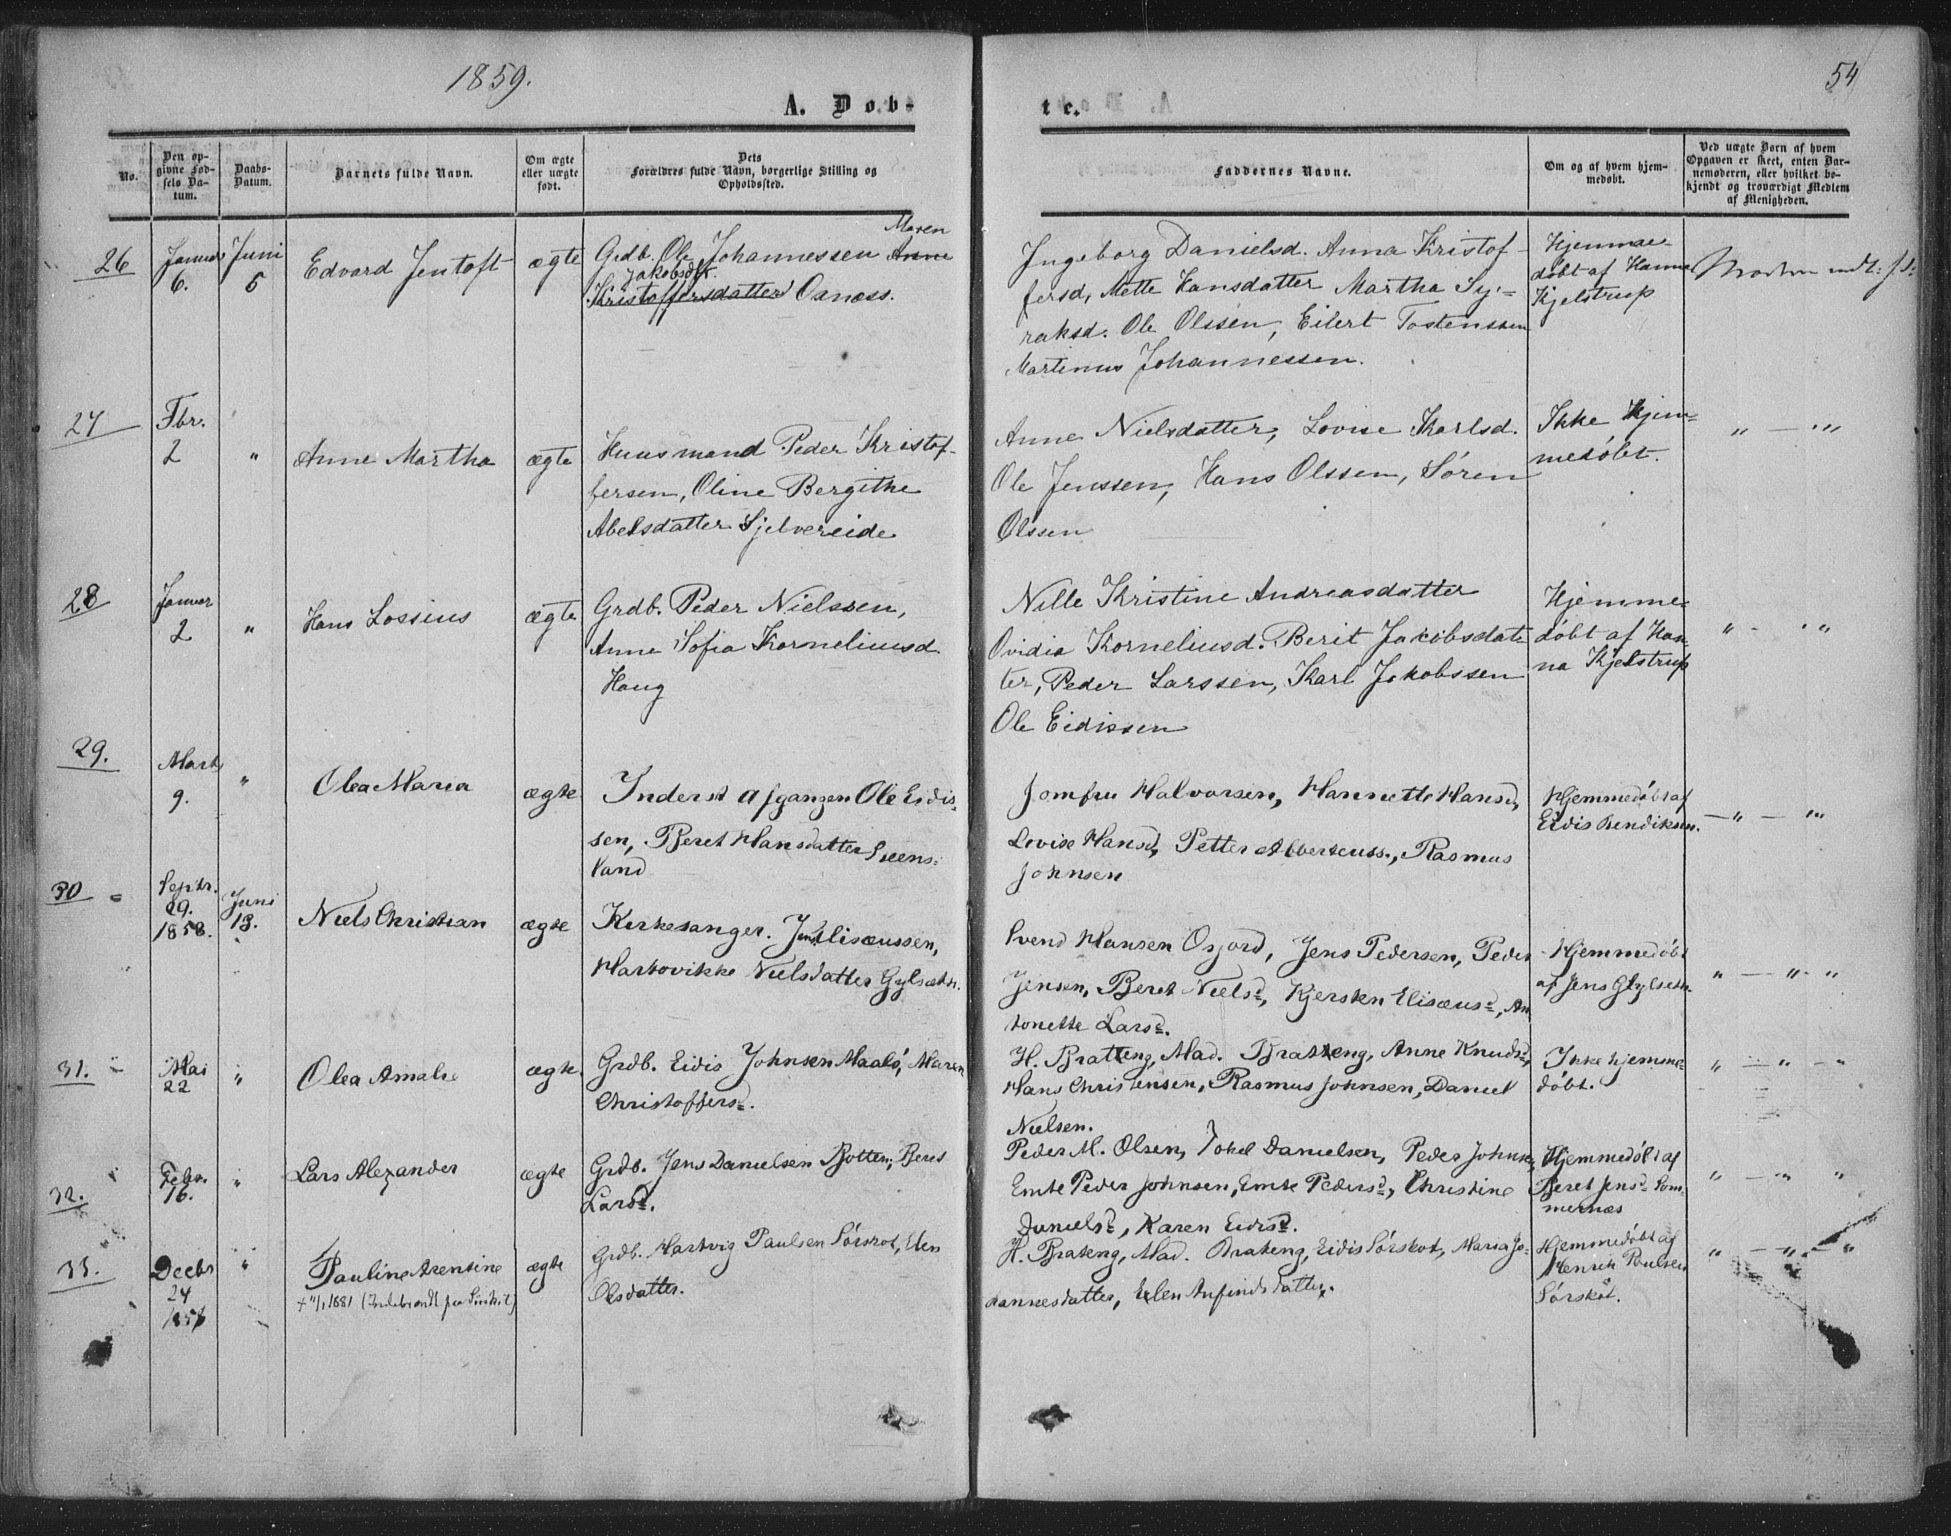 1859.
54
A. Døb-
te.
No.
Den op-
givne Fød-
sels Da-
tum.
Daabs-
Datum.
Barnets fulde Navn.
Om ægte
eller uægte
født.
Dets
Forældres fulde Navn, borgerlige Stilling og
Opholdssted.
Faddernes Navne.
Om og af hvem hjem-
medøbt.
Ved uægte Børn af hvem
Opgaven er skeet, enten Bar-
nemoderen, eller hvilket be-
kjendt og troværdigt Medlem
af Menigheden.
26
Januar
6.
Juni
5
Edvard Jentoft
ægte
Maren
Grdb. Ole Johannessen Anne
Jakobsdtr.
Kristoffersdatter Osnæss.
Ingeborg Danielsd. Anna Kristof-
fersd, Mette Hansdatter Martha Sy-
raksd. Ole Olssen, Eilert Tostenssen
Martinus Johannessen.
Hjemme-
døbt af Hanna
Kjelstrup
27
Fbr.
2
"
Anne Martha
ægte
Huusmand Peder Kristof-
fersen, Oline Bergithe
Abelsdatter Sjelvereide
Anne Nielsdatter, Lovise Karlsd.
Ole Jenssen, Hans Olssen, Søren
Olssen
Ikke Hjem-
medøbt.
" — " "
28
Januar
2
"
Hans Lossius
ægte
Grdb. Peder Nielssen,
Anne Sofia Korneliusd.
Haug
Nille Kristine Andreasdatter
Ovidia Korneliusd. Berit Jakobsdat-
ter, Peder Larssen, Karl Jakobssen
Ole Eidissen
Hjemme-
døbt af Han-
na Kjelstrup
" - " "
29.
Marts
9.
"
Olea Maria
ægte
Inderst Afgangen Ole Eidis-
sen, Beret Hansdatter Steens-
land
Jomfru Halvorsen, Hannette Hansd,
Lovise Hansd, Petter Alberteuss., Rasmus
Johnsen
Hjemmedøbt af
Eidis Bendiksen.
— " — " "
30
Septr.
29.
1858.
Juni
13.
Niels Christian
ægte
Kirkesanger. Jens Elisæussen,
Hartvikke Nielsdatter Gylseth.
Svend Hansen Osjord, Jens Pedersen, Peder
Jensen, Beret Nielsd, Kjersten Elisæusd, An-
tonette Larsd.
Hjemmedøbt
af Jens Gylseth.
" — " - "
31.
Mai
22
"
Olea Amalie
ægte
Grdb. Eidis Johnsen Maalø, Maren
Christoffersd.
H. Bratteng, Mad. Bratteng, Anne Knudsd,
Hans Christensen, Rasmus Johnsen, Daniel
Nielsen.
Ikke hjemme-
døbt.
" — " - "
32.
Febr.
16.
"
Lars Alexander
ægte
Grdb. Jens Danielsen Botten, Beret
Larsd.
Peder M. Olsen, Tokel Danielsen, Peder Johnsen,
Emte Peder Johnsen, Emte Pedersd, Christine
Danielsd, Karen Eidisd.
Hjemmedøbt af
Beret Jensd Som-
mernæs
" — " "
33.
Decbr
24
"
Pauline Arentine
ægte
Grdb. Hartvig Paulsen Sørskot, Elen
Olsdatter.
H. Brateng, Mad. Brateng, Eidis Sørskot, Maria Jo-
hannesdatter, Elen Anfindsdatter.
Hjemmedøbt af
Henrik Poulsen
Sørskot.
" — " — "